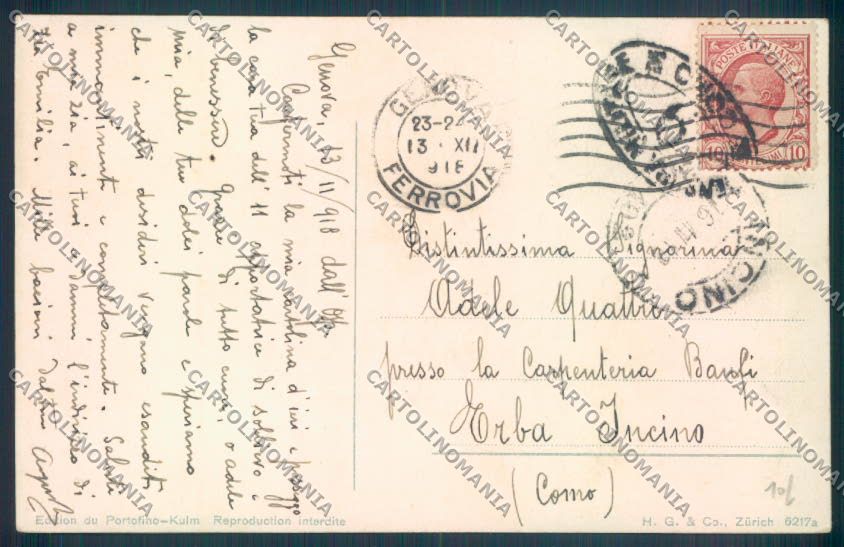 Genova, 13/11/918 dall'Uff.
Confermoti la mia cartolina d'ieri e posseggo
la cara tua dell' 11 apportatrice di sollievo e
di benessere. Grazie di tutto cuore, o Adele
mia, delle tue dolci parole e speriamo
che i nostri desideri vengano esauditi
immantinenti e completamente. Saluti
a mia zia, ai tuoi e dammi l'indirizzo di
zia Emilia. Mille bacioni dal tuo
Distintissima Signorina
Adele Quattri
presso la Carpenteria Banfi
Erba Incino
(Como)
GENOVA
23-24
13 XII
918
FERROVIA
POSTE ITALIANE
10 CENTESIMI 10
INCINO
Edition du Portofino-Kulm Reproduction interdite
H. G. & Co., Zürich 6217a
CARTOLINOMANIA